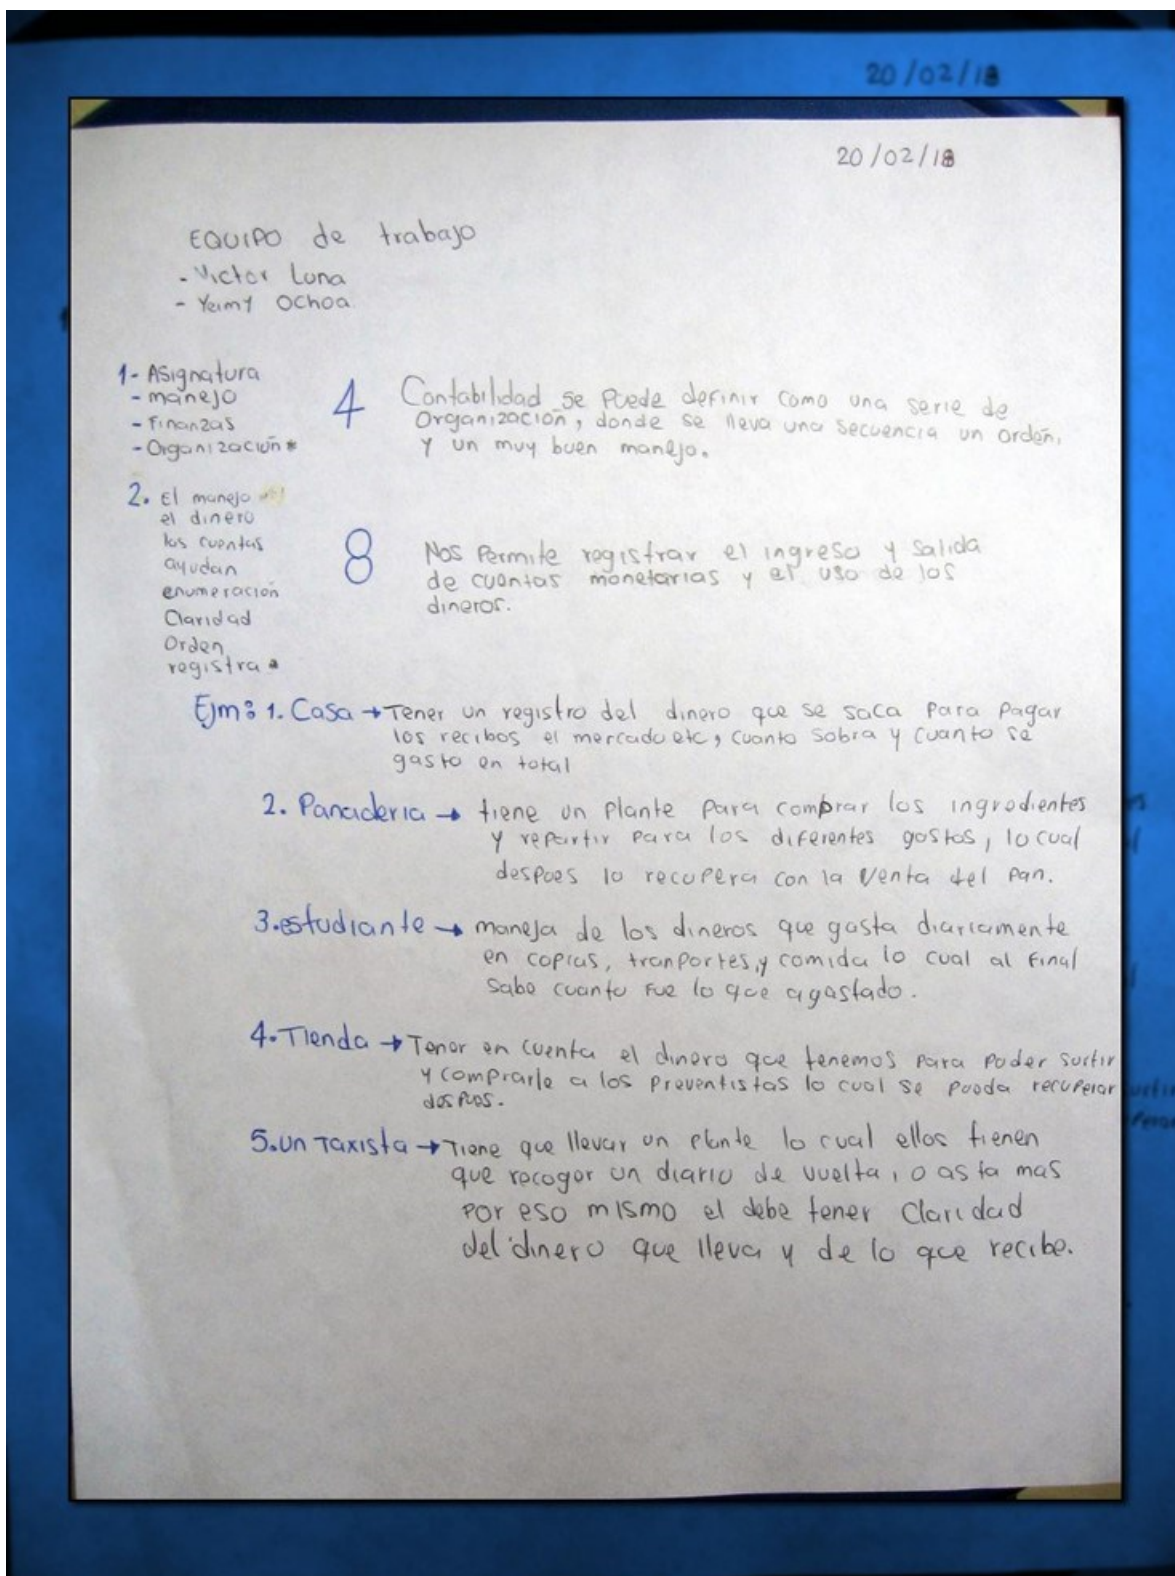 20/02/18
20/02/18
EQUIPO de trabajo
- Victor Luna
- Yeimy Ochoa
1- Asignatura
- manejo
- finanzas
- Organización *
4 Contabilidad se puede definir como una serie de
Organización, donde se lleva una secuencia un orden,
y un muy buen manejo.
2. El manejo
el dinero
las cuentas
ayudan
enumeración
Claridad
Orden
registra
8 Nos Permite registrar el ingreso y salida
de cuentas monetarias y el uso de los
dineros.
Ejm: 1. Casa → Tener un registro del dinero que se saca para pagar
los recibos el mercado etc, cuanto sobra y cuanto se
gasto en total
2. Panaderia → tiene un plante para comprar los ingredientes
y repartir para los diferentes gastos, lo cual
despues lo recupera con la venta del pan.
3. estudiante → maneja de los dineros que gasta diariamente
en copias, tranportes, y comida lo cual al final
sabe cuanto fue lo que agastado.
4. Tienda → Tener en cuenta el dinero que tenemos para poder surtir
y comprarle a los preventistas lo cual se pueda recuperar
despues.
5. un Taxista → Tiene que llevar un plante lo cual ellos tienen
que recoger un diario de vuelta, o asta mas
por eso mismo el debe tener claridad
del dinero que lleva y de lo que recibe.